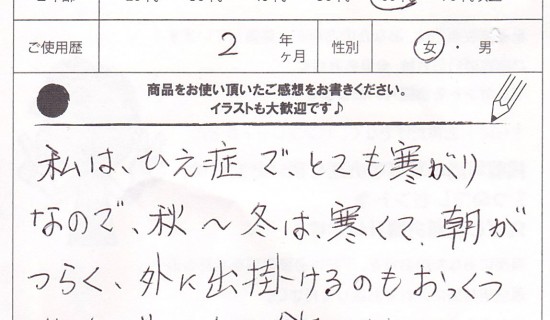 ご使用歴 2 年 ヶ月 性別 女・男
商品をお使い頂いたご感想をお書きください。
イラストも大歓迎です♪
私は、ひえ症で、とても寒がり
なので、秋〜冬は、寒くて、朝が
つらく、外に出掛けるのもおっくう